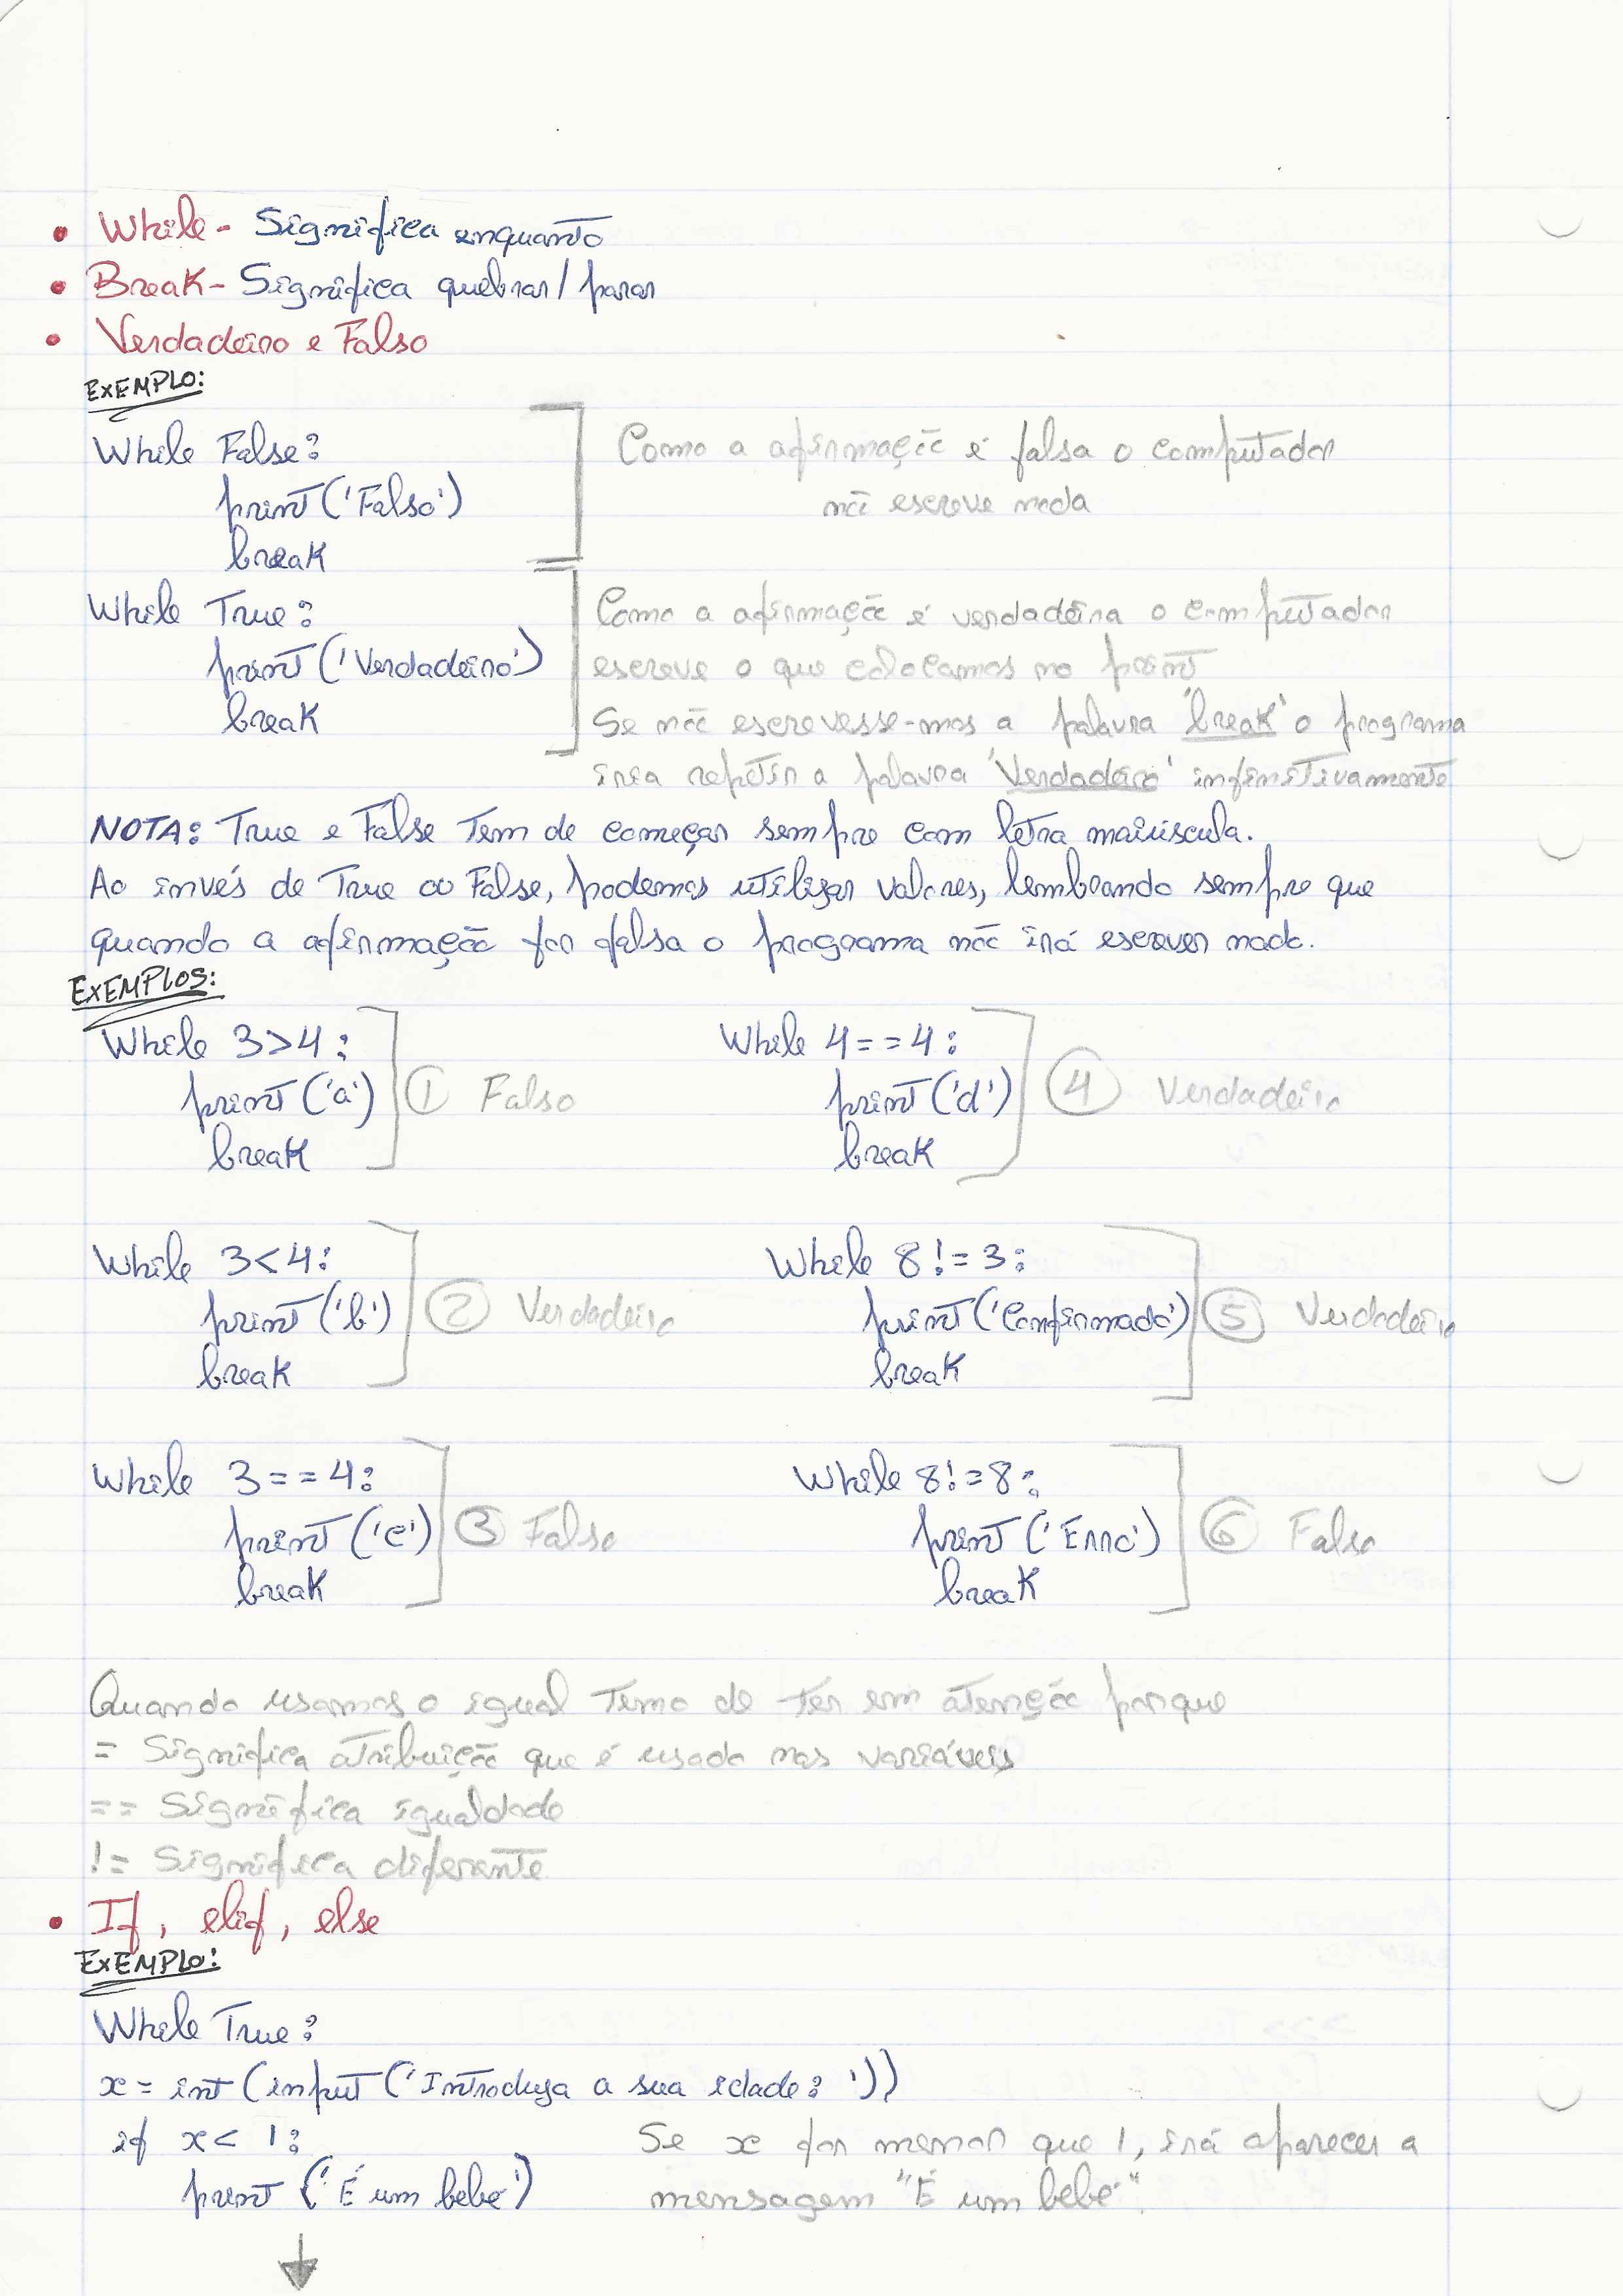 • While - Significa enquanto
• Break - Significa quebrar/parar
• Verdadeiro e Falso
EXEMPLO:
While False:
print('Falso')
break
Como a afirmação é falsa o computador
não escreve nada
While True:
print('Verdadeiro')
break
Como a afirmação é verdadeira o computador
escreve o que colocamos no print
Se não escrevesse-mos a palavra 'break' o programa
iria repetir a palavra 'Verdadeiro' infinitivamente
NOTA: True e False Tem de começar sempre com letra maiúscula.
Ao invés de True ou False, podemos utilizar valores, lembrando sempre que
quando a afirmação for falsa o programa não irá escrever nada.
EXEMPLOS:
While 3>4:
print('a')
break
① Falso
While 4==4:
print('d')
break
④ Verdadeiro
While 3<4:
print('b')
break
② Verdadeiro
While 8!=3:
print('Confirmado')
break
⑤ Verdadeiro
While 3==4:
print('c')
break
③ Falso
While 8!=8:
print('Erro')
break
⑥ Falso
Quando usamos o igual Temo de ter em atenção porque
= Significa atribuição que é usada nas variáveis
== Significa igualdade
!= Significa diferente
• If, elif, else
EXEMPLO:
While True:
x = int(input('Introduza a sua idade: '))
if x < 1:
print('É um bebé')
Se x for menor que 1, irá aparecer a
mensagem "É um bebé".